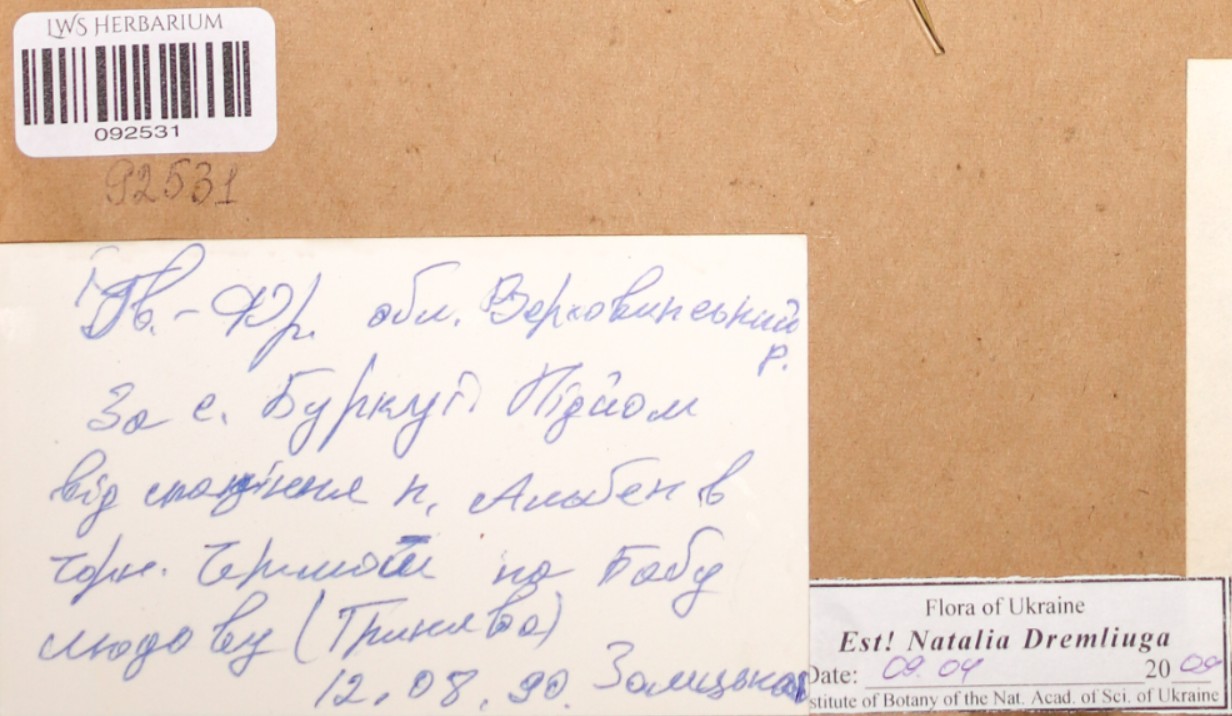 LWS HERBARIUM
092531
92531
Ів.-Фр. обл. Верховинський
р.
За с. Буркут. Підйом
від впадіння п. Альбен в
Чорн. Черемош на Бабу
Людову (Гринява)
12.08.90.
Flora of Ukraine
Est! Natalia Dremliuga
Date: 09.04 2009
stitute of Botany of the Nat. Acad. of Sci. of Ukraine